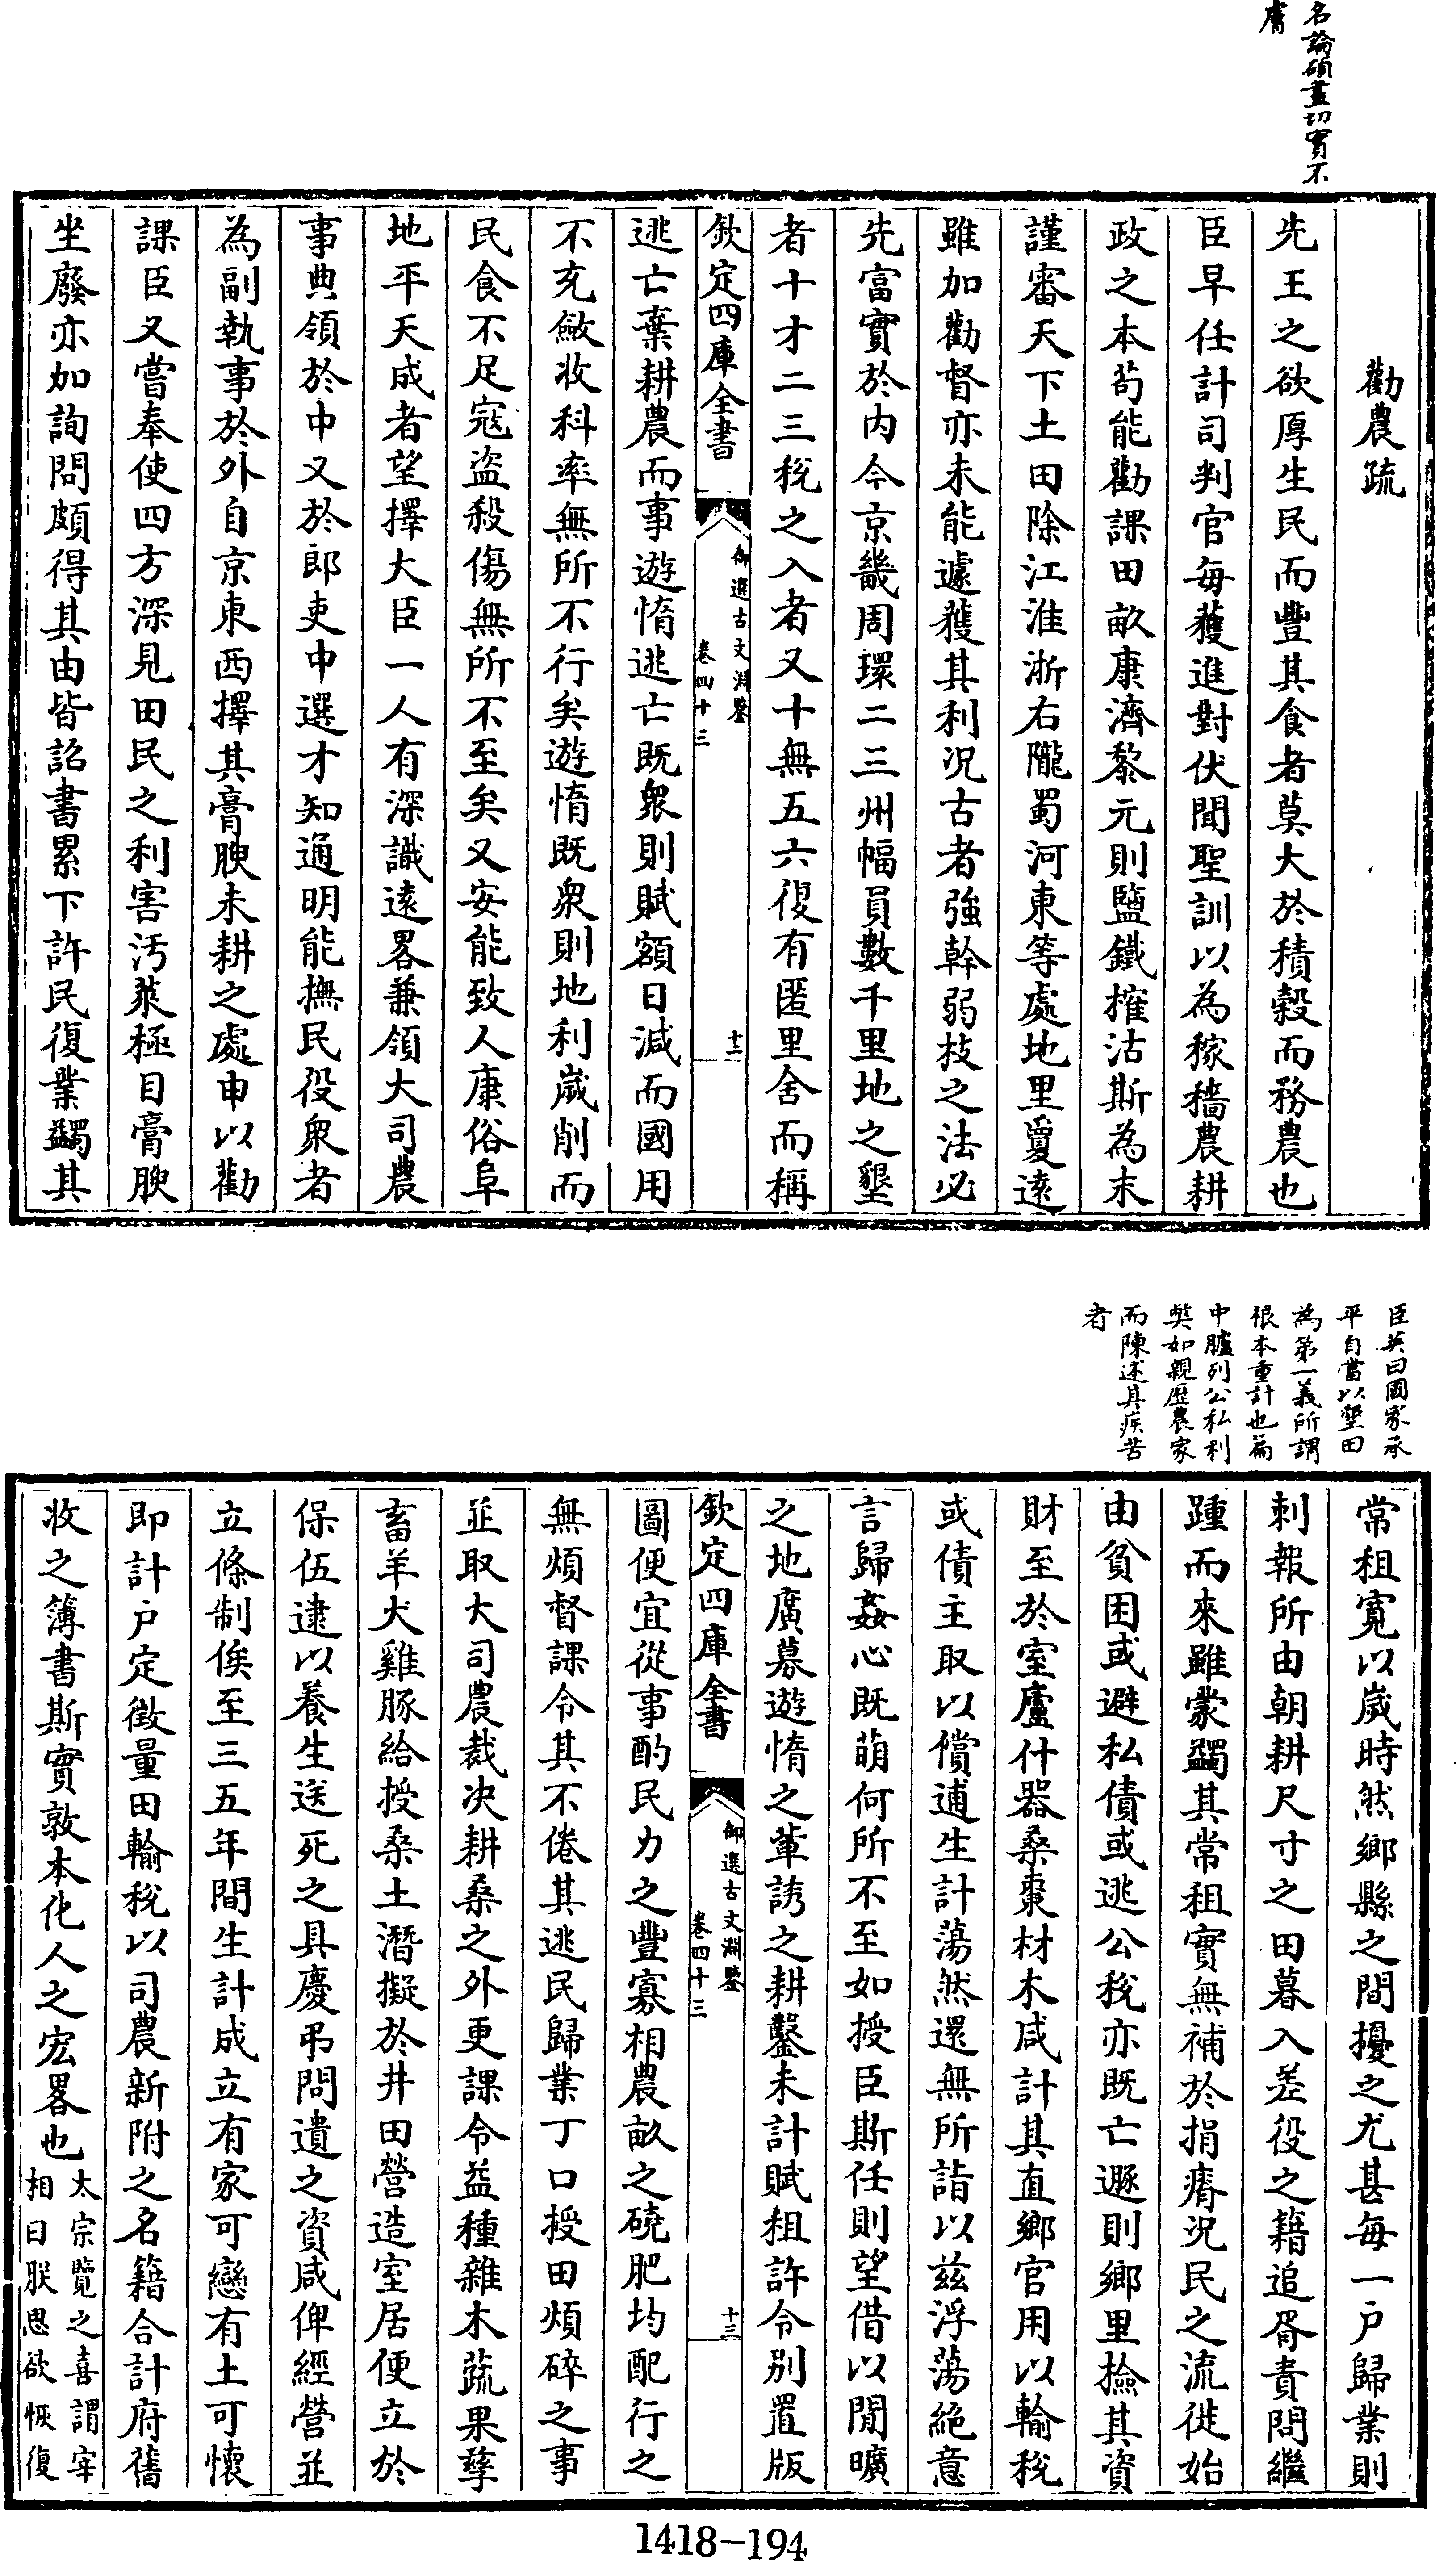 名論碩畫切實不
膚
勸農疏
先王之欲厚生民而豐其食者莫大於積穀而務農也
臣早任計司判官每獲進對伏聞聖訓以為稼穡農耕
政之本苟能勸課田畝康濟黎元則鹽鐵榷沽斯為末
謹審天下土田除江淮浙右隴蜀河東等處地里敻遠
雖加勸督亦未能遽獲其利況古者強幹弱枝之法必
先富實於内今京畿周環二三州幅員數千里地之墾
者十才二三稅之入者又十無五六復有匿里舍而稱
欽定四庫全書
御選古文淵鑒
卷四十三
十二
逃亡棄耕農而事遊惰逃亡既衆則賦額日減而國用
不充斂收科率無所不行矣遊惰既衆則地利嵗削而
民食不足寇盜殺傷無所不至矣又安能致人康俗阜
地平天成者望擇大臣一人有深識遠畧兼領大司農
事典領於中又於郎吏中選才知通明能撫民役衆者
為副執事於外自京東西擇其膏腴未耕之處申以勸
課臣又嘗奉使四方深見田民之利害汚萊極目膏腴
坐廢亦加詢問頗得其由皆詔書累下許民復業蠲其
臣英曰國家承
平自當以墾田
為第一義所謂
根本重計也篇
中臚列公私利
獘如親歴農家
而陳述具疾苦
者
常租寛以嵗時然鄉縣之間擾之尤甚每一户歸業則
刺報所由朝耕尺寸之田暮入差役之籍追胥責問繼
踵而來雖蒙蠲其常租實無補於捐瘠況民之流徙始
由貧困或避私債或逃公稅亦既亡遯則鄉里撿其資
財至於室廬什器桑棗材木咸計其直鄉官用以輸稅
或債主取以償逋生計蕩然還無所詣以兹浮蕩絶意
言歸姦心既萌何所不至如授臣斯任則望借以閒曠
之地廣募遊惰之輩誘之耕鑿未計賦租許令别置版
欽定四庫全書
御選古文淵鑒
卷四十三
十三
圖便宜從事酌民力之豐寡相農畝之磽肥均配行之
無煩督課令其不倦其逃民歸業丁口授田煩碎之事
並取大司農裁決耕桑之外更課令益種雜木蔬果孳
畜羊犬雞豚給授桑土潛擬於井田營造室居便立於
保伍逮以養生送死之具慶弔問遺之資咸俾經營並
立條制俟至三五年間生計成立有家可戀有土可懐
即計户定徵量田輸稅以司農新附之名籍合計府舊
收之簿書斯實敦本化人之宏畧也
太宗覽之喜謂宰
相曰朕思欲恢復
1418-194